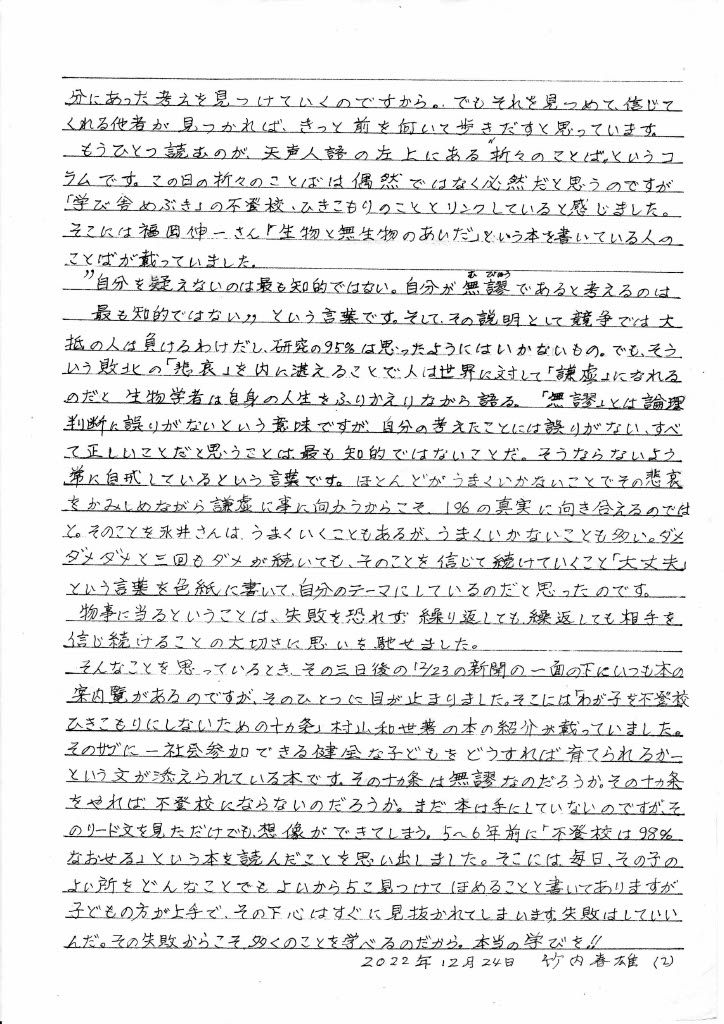 分にあった考えを見つけていくのですから。でもそれを見つめて、信じて
くれる他者が見つかれば、きっと前を向いて歩きだすと思っています。
もうひとつ読むのが、天声人語の左上にある〝折々のことば〟というコ
ラムです。この日の折々のことばは偶然ではなく必然だと思うのですが
「学び舎めぶき」の不登校、ひきこもりのこととリンクしていると感じました。
そこには福岡伸一さん「生物と無生物のあいだ」という本を書いている人の
ことばが載っていました。
〝自分を疑えないのは最も知的ではない。自分が無謬であると考えるのは
むびゅう
最も知的ではない〟という言葉です。そして、その説明として競争では大
抵の人は負けるわけだし、研究の95%は思ったようにはいかないもの。でも、そう
いう敗北の「悲哀」を内に湛えることで人は世界に対して「謙虚」になれる
のだと 生物学者は自身の人生をふりかえりながら語る。「無謬」とは論理
判断に誤りがないという意味ですが、自分の考えたことには誤りがない、すべ
て正しいことだと思うことは最も知的ではないことだ。そうならないよう
常に自戒しているという言葉です。ほとんどがうまくいかないことでその悲哀
をかみしめながら謙虚に事に向かうからこそ、1%の真実に向き合えるのでは
と。そのことを永井さんは、うまくいくこともあるが、うまくいかないことも多い。ダメ
ダメダメと三回もダメが続いても、そのことを信じて続けていくこと「大丈夫」
という言葉を色紙に書いて、自分のテーマにしているのだと思ったのです。
物事に当るということは、失敗を恐れず繰り返しても、繰返しても相手を
信じ続けることの大切さに思いを馳せました。
そんなことを思っているとき、その三日後の12/23の新聞の一面の下にいつも本の
案内覧があるのですが、そのひとつに目が止まりました。そこには「わが子を不登校
ひきこもりにしないための十ヵ条」村山和世著の本の紹介が載っていました。
そのサブに―社会参加できる健全な子どもをどうすれば育てられるか―
という文が添えられている本です。その十ヵ条は無謬なのだろうか。その十ヵ条
をやれば不登校にならないのだろうか。まだ本は手にしていないのですが、そ
のリード文を見ただけでも、想像ができてしまう。5〜6年前に「不登校は98%
なおせる」という本を読んだことを思い出しました。そこには、毎日、その子の
よい所をどんなことでもよいから5こ見つけてほめることと書いてありますが
子どもの方が上手で、その下心はすぐに見抜かれてしまいます。失敗はしていい
んだ。その失敗からこそ、多くのことを学べるのだから。本当の学びを!!
2022年12月24日 竹内春雄 (2)